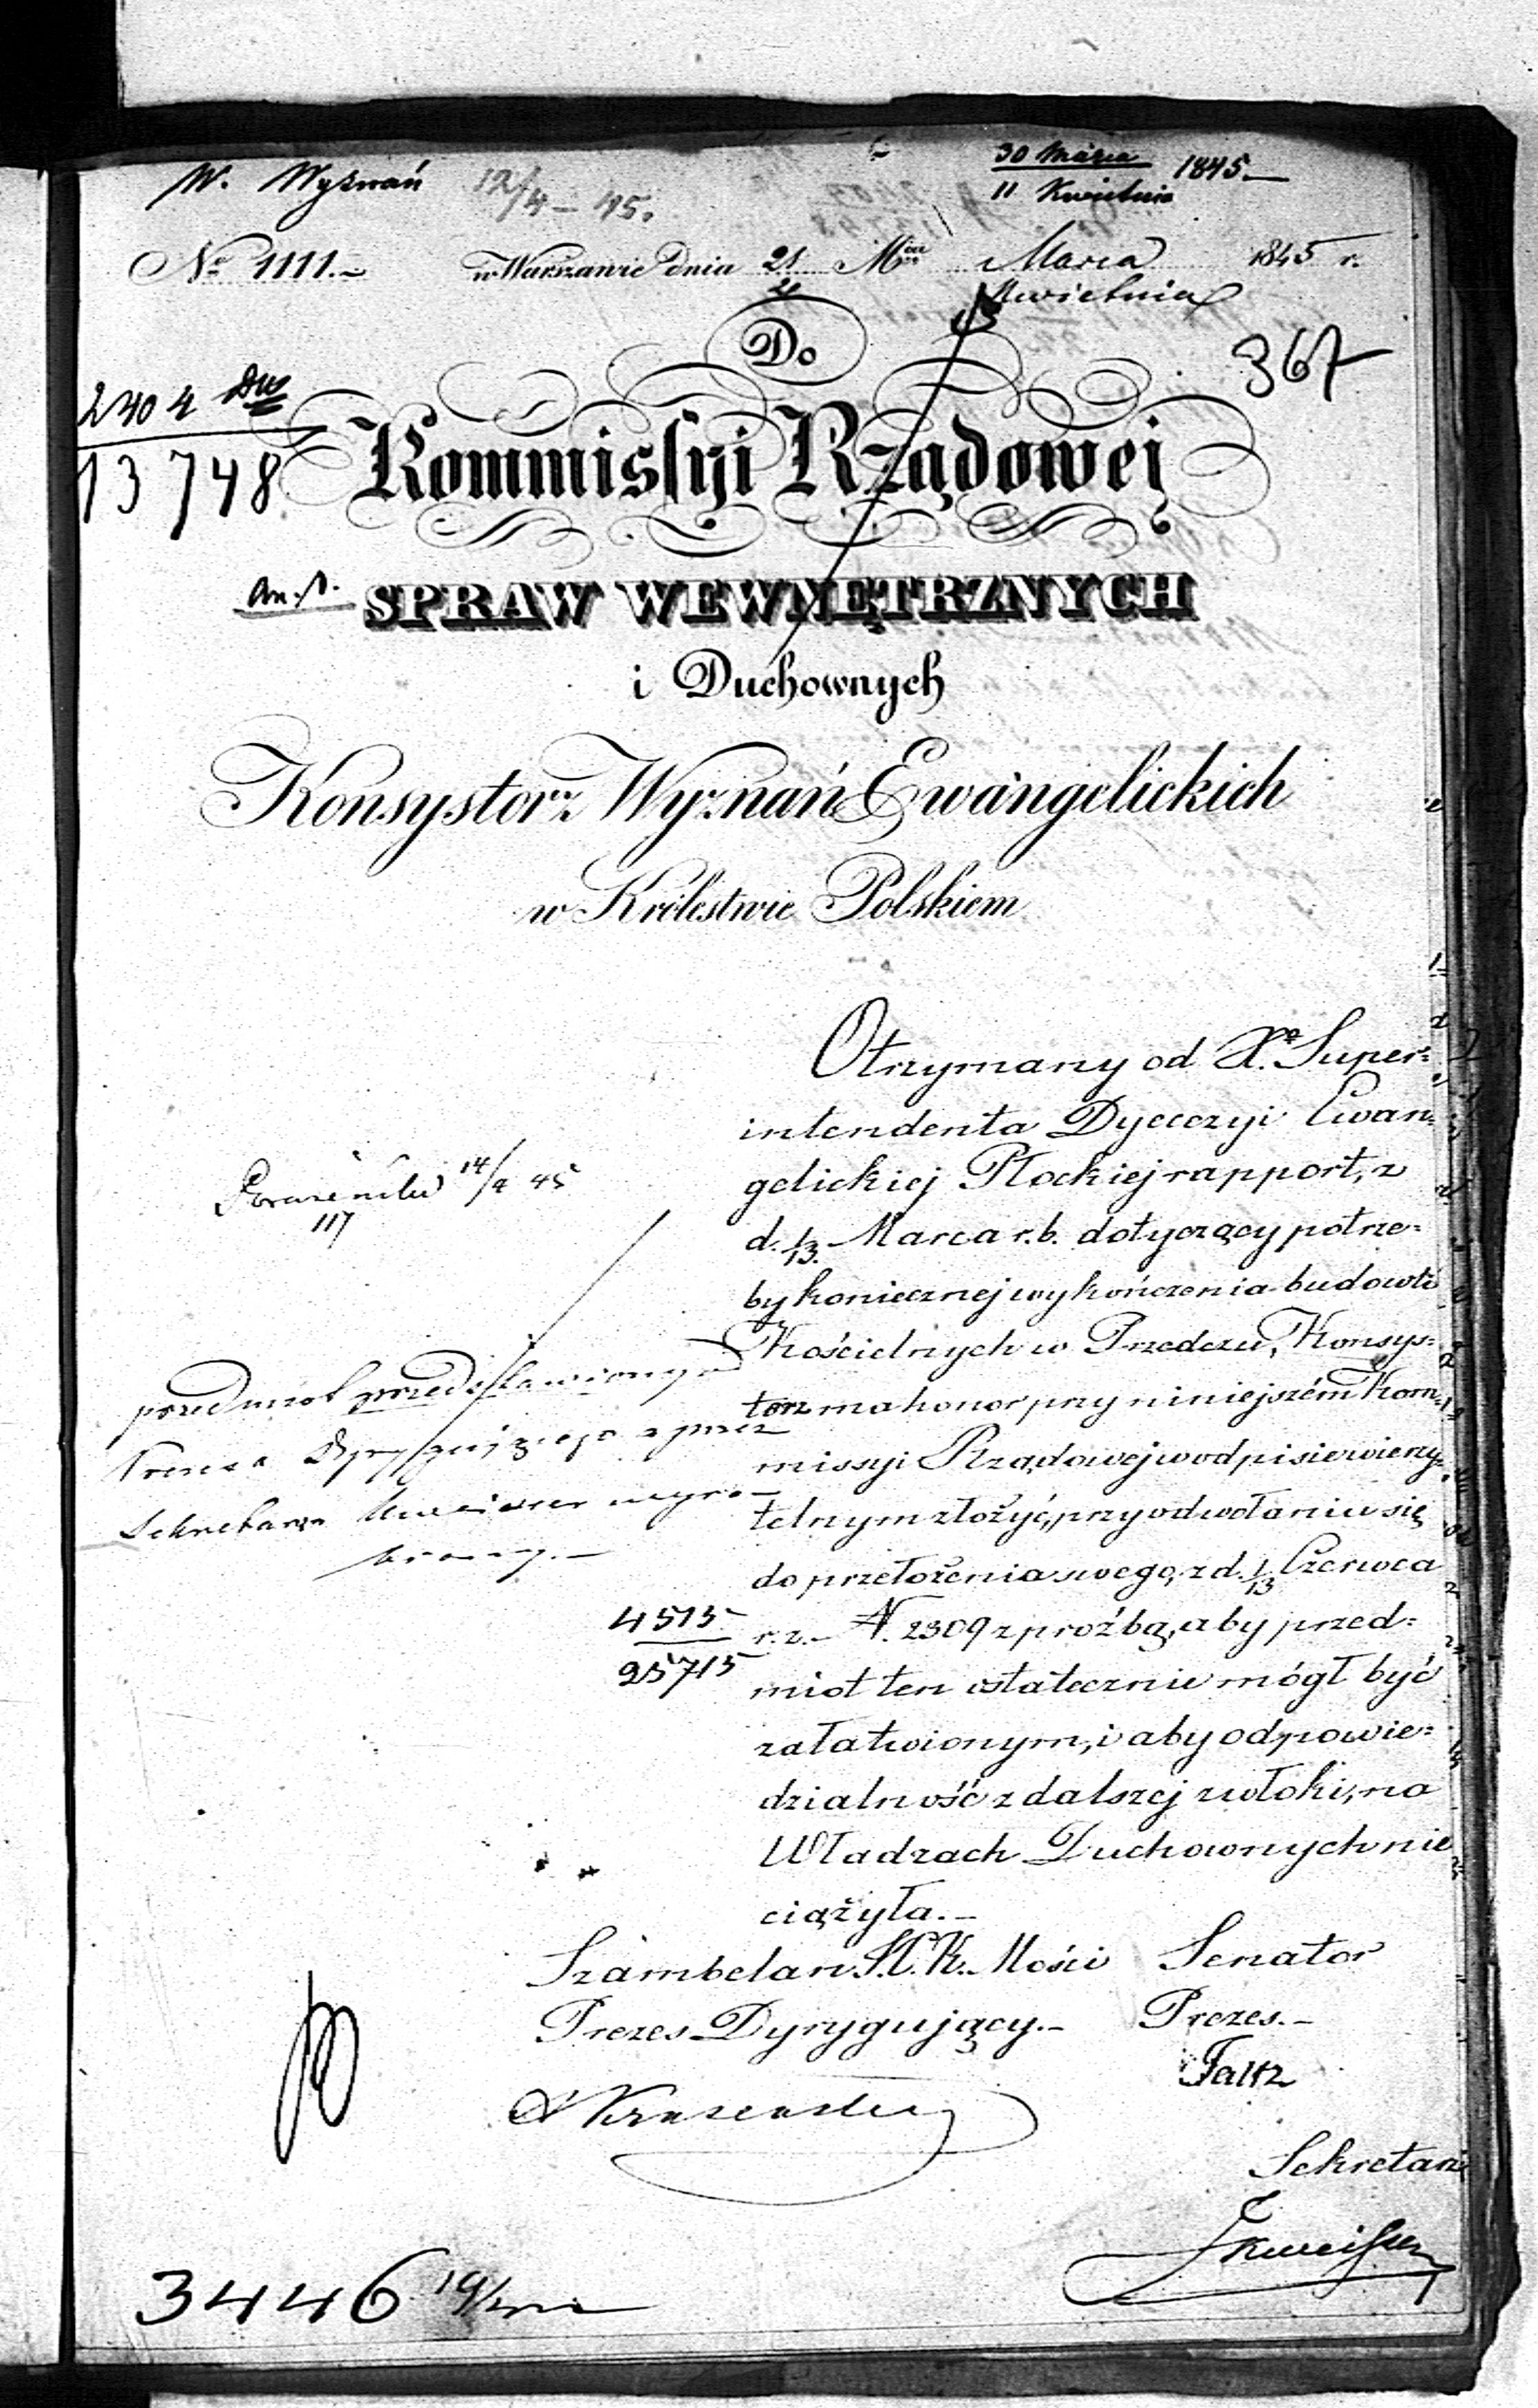 W. Wyznań 12/4 – 45.
30 Marca
11 Kwietnia 1845.–
No 1111.– w Warszawie dnia 21 Mca Marca 1845 r.
Kwietnia
Do
367
2404
13748
Kommissyi Rządowej
SPRAW WEWNĘTRZNYCH
i Duchownych
Konsystorz Wyznań Ewangelickich
w Królestwie Polskiem
Otrzymany od X. Super:
intendenta Dyecezyi Ewan:
gelickiej Płockiej rapport, z
d. 1/13. Marca r.b. dotyczący potrze:
by koniecznej wykończenia budowli
Kościelnych w Przedczu, Konsys:
torz ma honor przy niniejszém Kom:
missyi Rządowej w odpisie wierzy:
telnym złożyć, przy odwołaniu się
do przełożenia swego, z d. 1/13 Czerwca
r. z. – N. 2309 z proźbą, aby przed:
miot ten ostatecznie mógł być
załatwionym, i aby odpowie:
dzialność z dalszej zwłoki, na
Władzach Duchownych nie
ciążyła.–
14/4 45
117
przedmiot przedstawiony
Prezesa Dyrygującego przez
Sekretarza
4515
25715
Szambelan J.C.K. Mości
Prezes Dyrygujący.–
Senator
Prezes.–
Sekretarz
3446